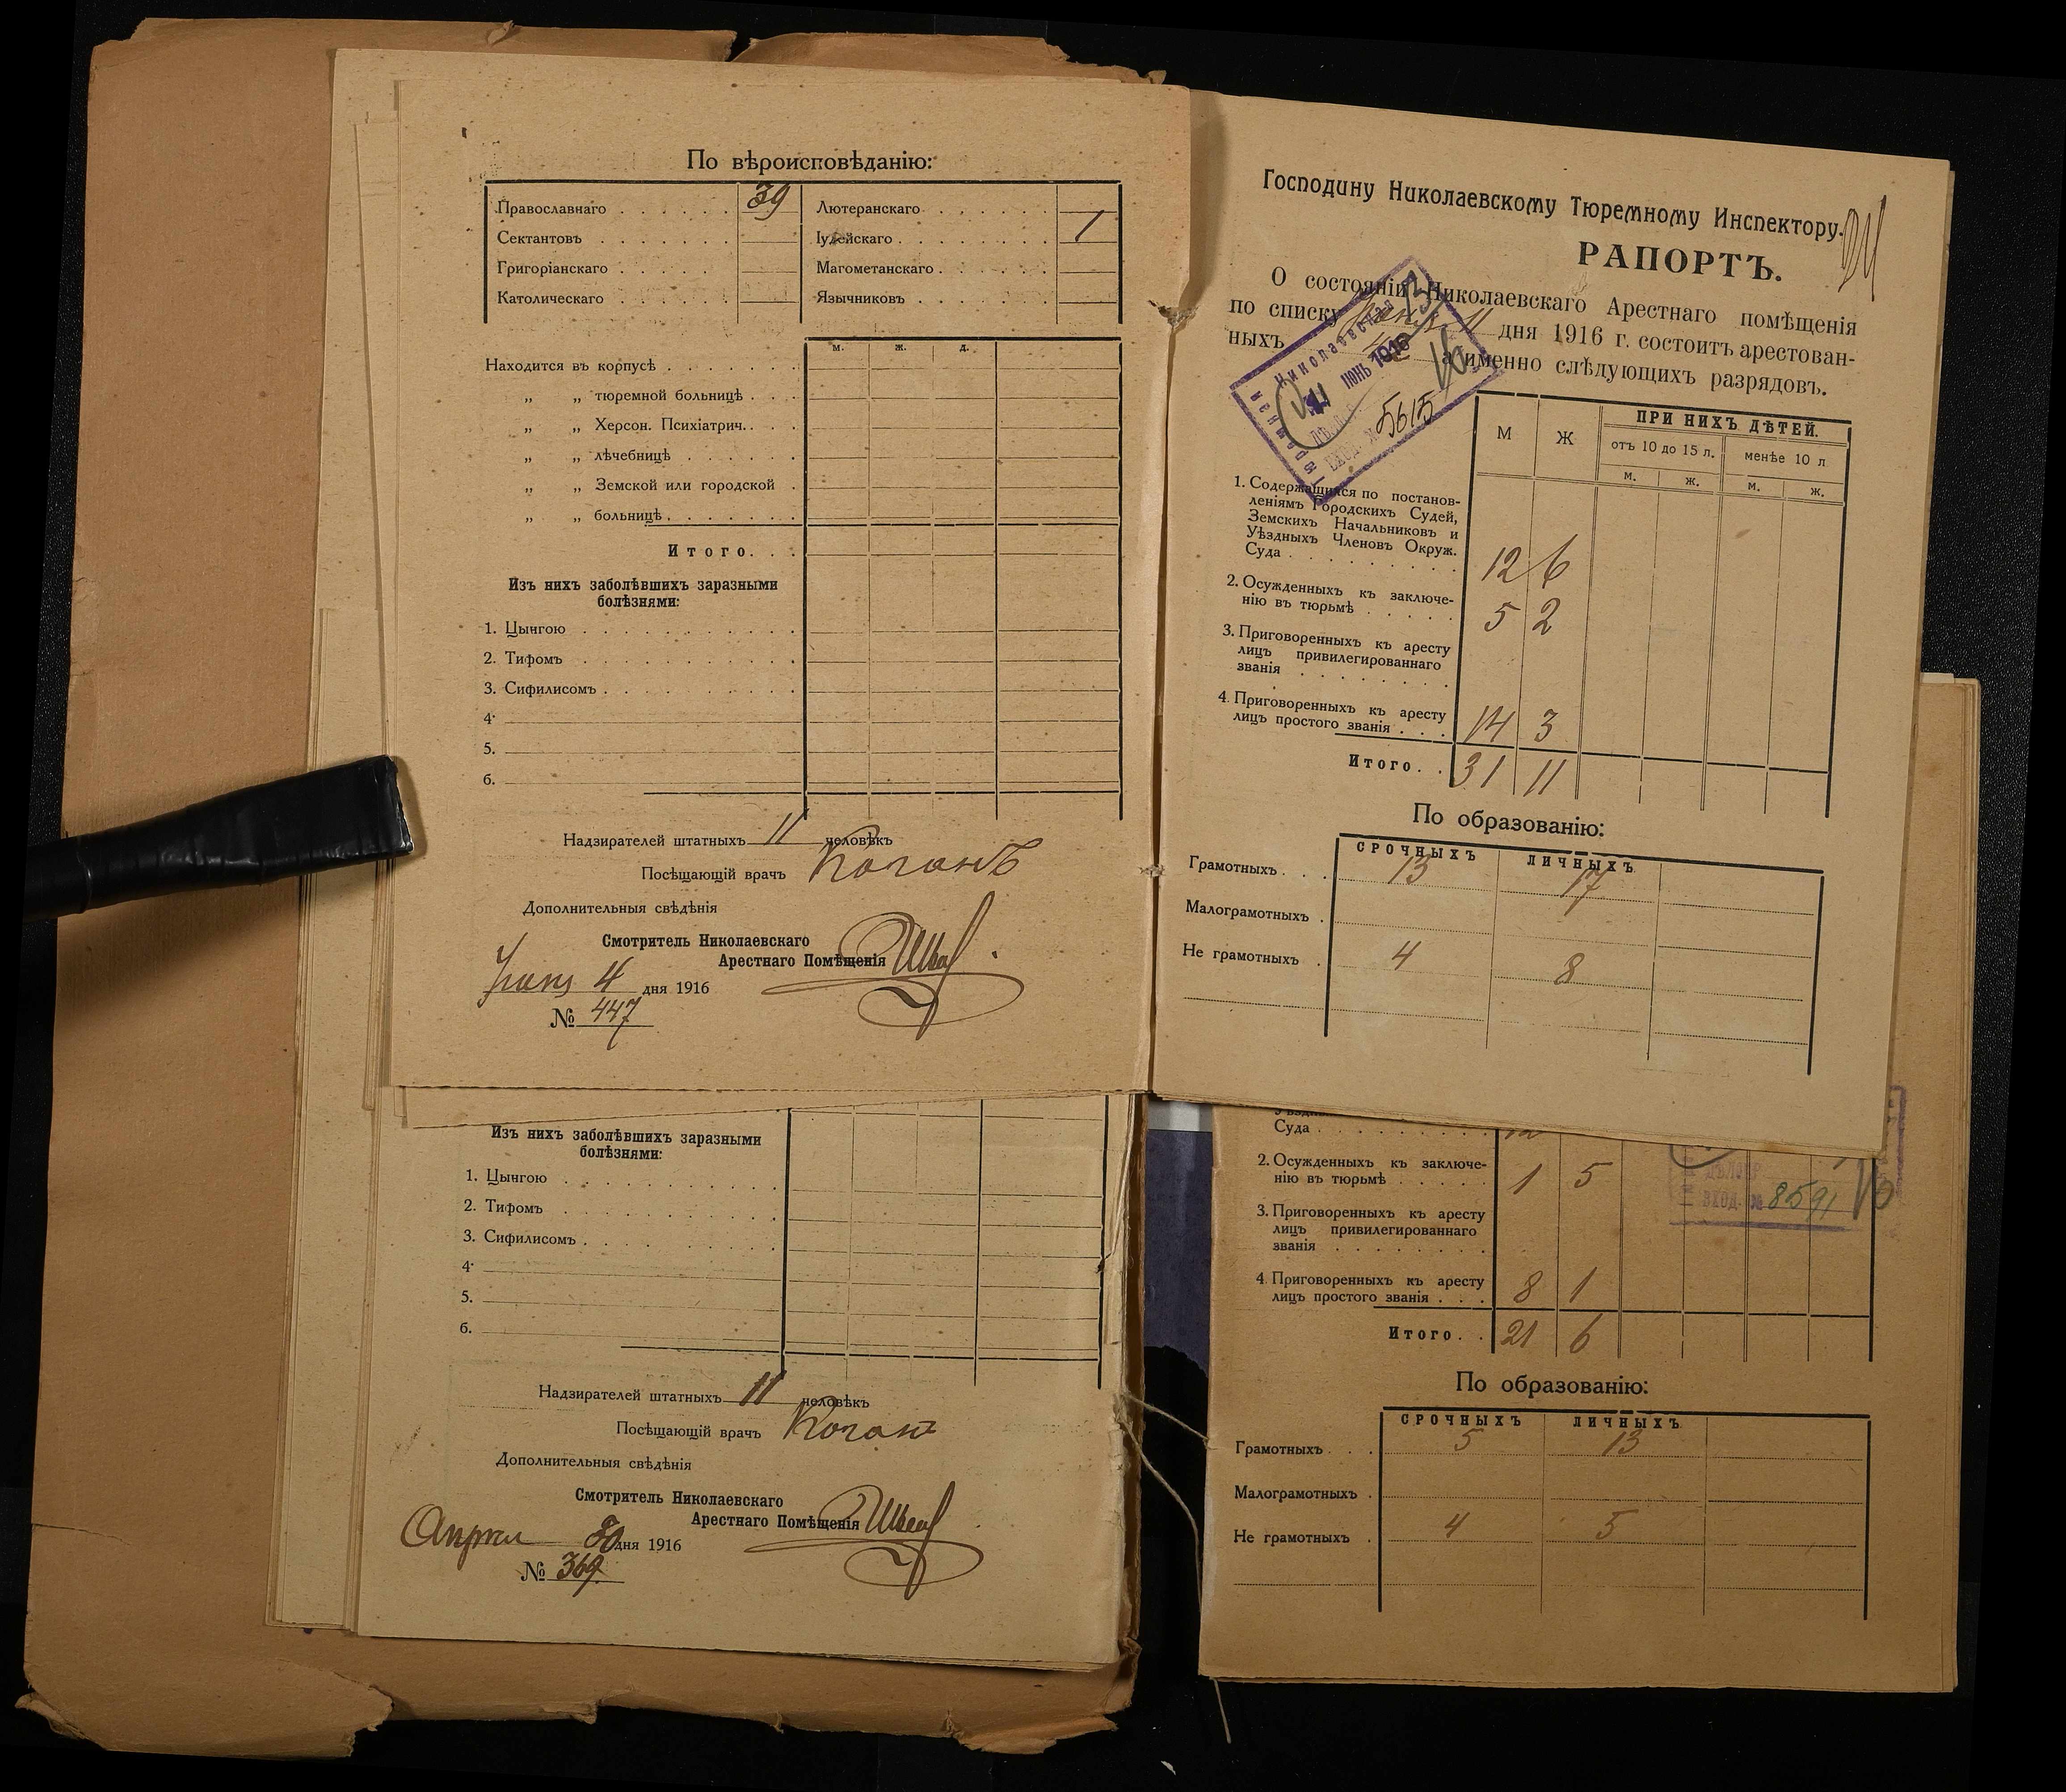 По вѣроисповѣданію:
Православнаго 39 Лютеранскаго
Сектантовъ Іудейскаго 1
Григоріанскаго Магометанскаго
Католическаго Язычниковъ
м. ж. д.
Находится въ корпусѣ
„ „ тюремной больницѣ
„ „ Херсон. Психіатрич.
„ „ лѣчебницѣ
„ „ Земской или городской
„ „ больницѣ
Итого
Изъ нихъ заболѣвшихъ заразными
болѣзнями:
1. Цынгою
2. Тифомъ
3. Сифилисомъ
4.
5.
6.
Надзирателей штатныхъ 11 человѣкъ
Посѣщающій врачъ Коганъ
Дополнительныя свѣдѣнія
Смотритель Николаевскаго
Арестнаго Помѣщенія
4 дня 1916
№ 447
Изъ нихъ заболѣвшихъ заразными
болѣзнями:
1. Цынгою
2. Тифомъ
3. Сифилисомъ
4.
5.
6.
Надзирателей штатныхъ 11 человѣкъ
Посѣщающій врачъ Коган
Дополнительныя свѣдѣнія
Смотритель Николаевскаго
Арестнаго Помѣщенія
Апрел 30 дня 1916
№ 369
Господину Николаевскому Тюремному Инспектору.
РАПОРТЪ.
О состояніи Николаевскаго Арестнаго помѣщенія
по списку 11 дня 1916 г. состоитъ арестован-
ныхъ а именно слѣдующихъ разрядовъ.
11 ІЮНЬ 1916
ВХОД. № 5615
М Ж ПРИ НИХЪ ДѢТЕЙ.
отъ 10 до 15 л. менѣе 10 л
м. ж. м. ж.
1. Содержащихся по постанов-
леніямъ Городскихъ Судей,
Земскихъ Начальниковъ и
Уѣздныхъ Членовъ Окруж.
Суда 12 6
2. Осужденныхъ къ заключе-
нію въ тюрьмѣ 5 2
3. Приговоренныхъ къ аресту
лицъ привилегированнаго
званія
4. Приговоренныхъ къ аресту
лицъ простого званія 14 3
Итого 31 11
По образованію:
СРОЧНЫХЪ ЛИЧНЫХЪ
Грамотныхъ 13 17
Малограмотныхъ
Не грамотныхъ 4 8
Суда 12
2. Осужденныхъ къ заключе-
нію въ тюрьмѣ 1 5
ВХОД. № 8591
3. Приговоренныхъ къ аресту
лицъ привилегированнаго
званія
4 Приговоренныхъ къ аресту
лицъ простого званія 8 1
Итого 21 6
По образованію:
СРОЧНЫХЪ ЛИЧНЫХЪ
Грамотныхъ 5 13
Малограмотныхъ
Не грамотныхъ 4 5